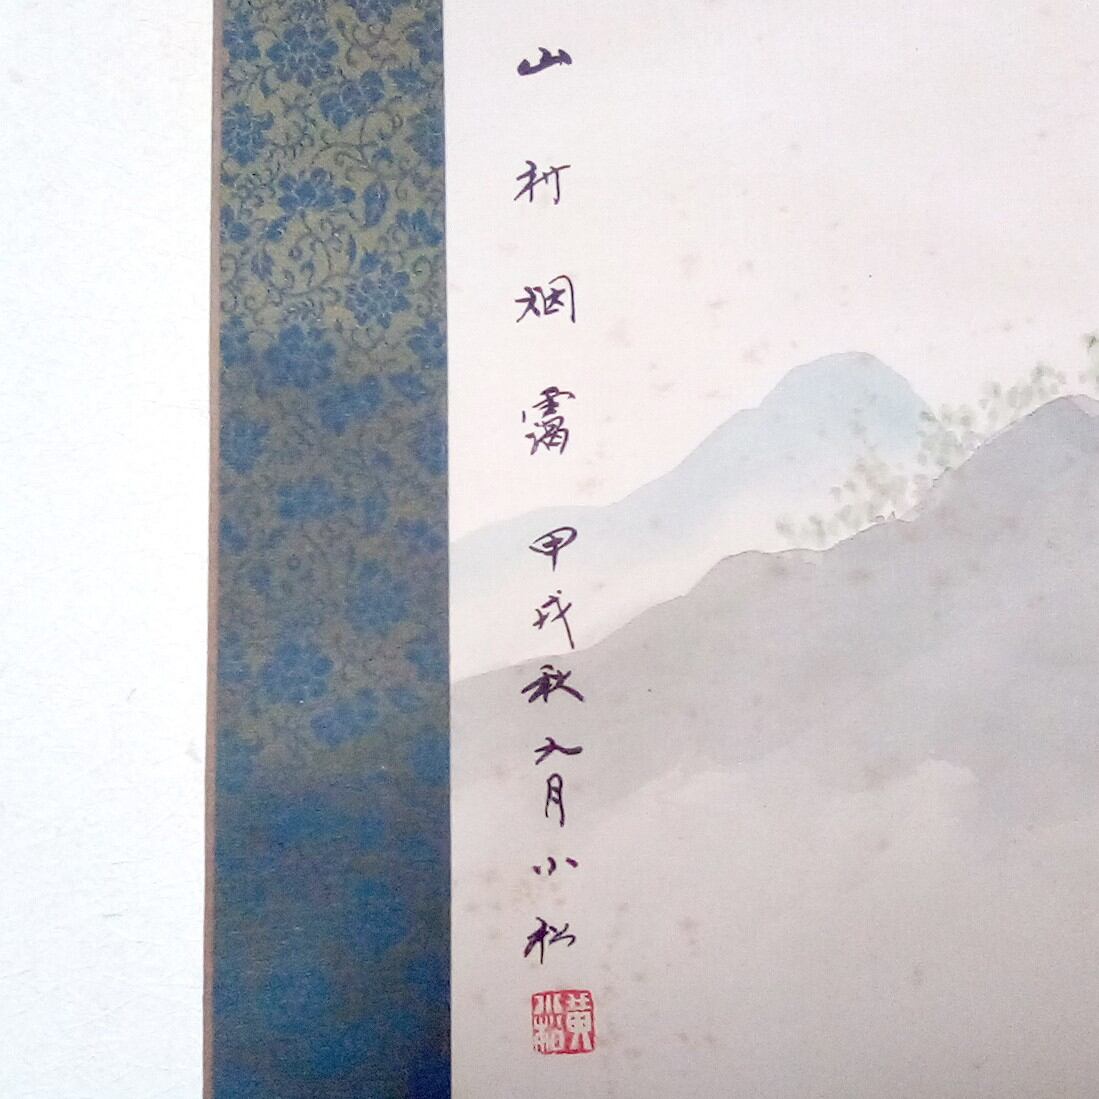 山村烟靄甲戌秋九月小松
黄小松